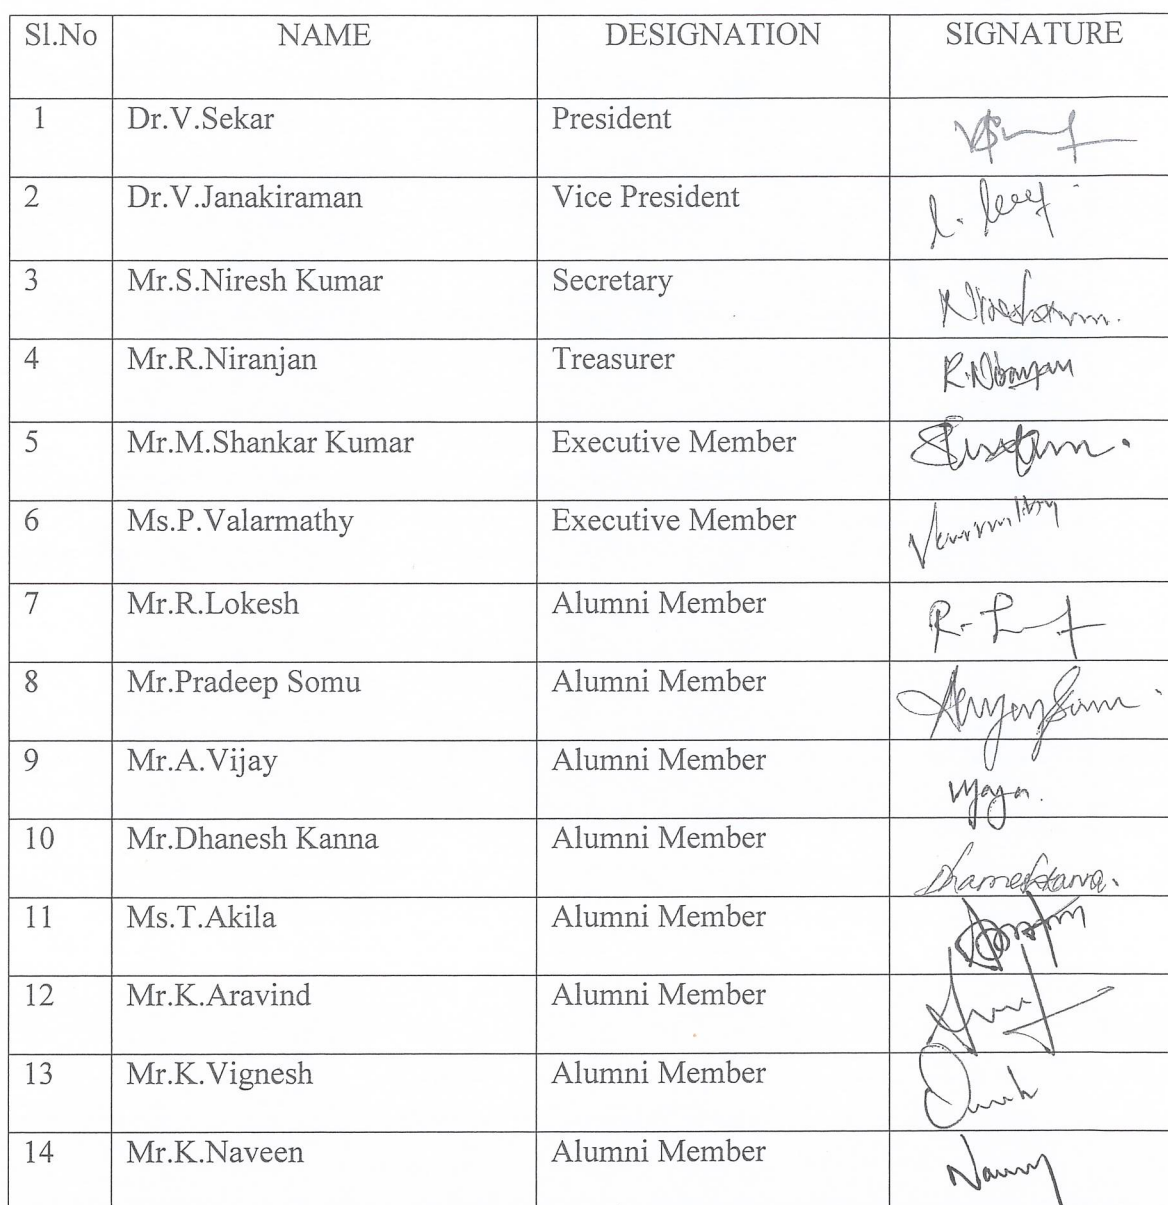 Sl.No NAME DESIGNATION SIGNATURE
1 Dr.V.Sekar President
2 Dr.V.Janakiraman Vice President
3 Mr.S.Niresh Kumar Secretary
4 Mr.R.Niranjan Treasurer
5 Mr.M.Shankar Kumar Executive Member
6 Ms.P.Valarmathy Executive Member
7 Mr.R.Lokesh Alumni Member
8 Mr.Pradeep Somu Alumni Member
9 Mr.A.Vijay Alumni Member
10 Mr.Dhanesh Kanna Alumni Member
11 Ms.T.Akila Alumni Member
12 Mr.K.Aravind Alumni Member
13 Mr.K.Vignesh Alumni Member
14 Mr.K.Naveen Alumni Member